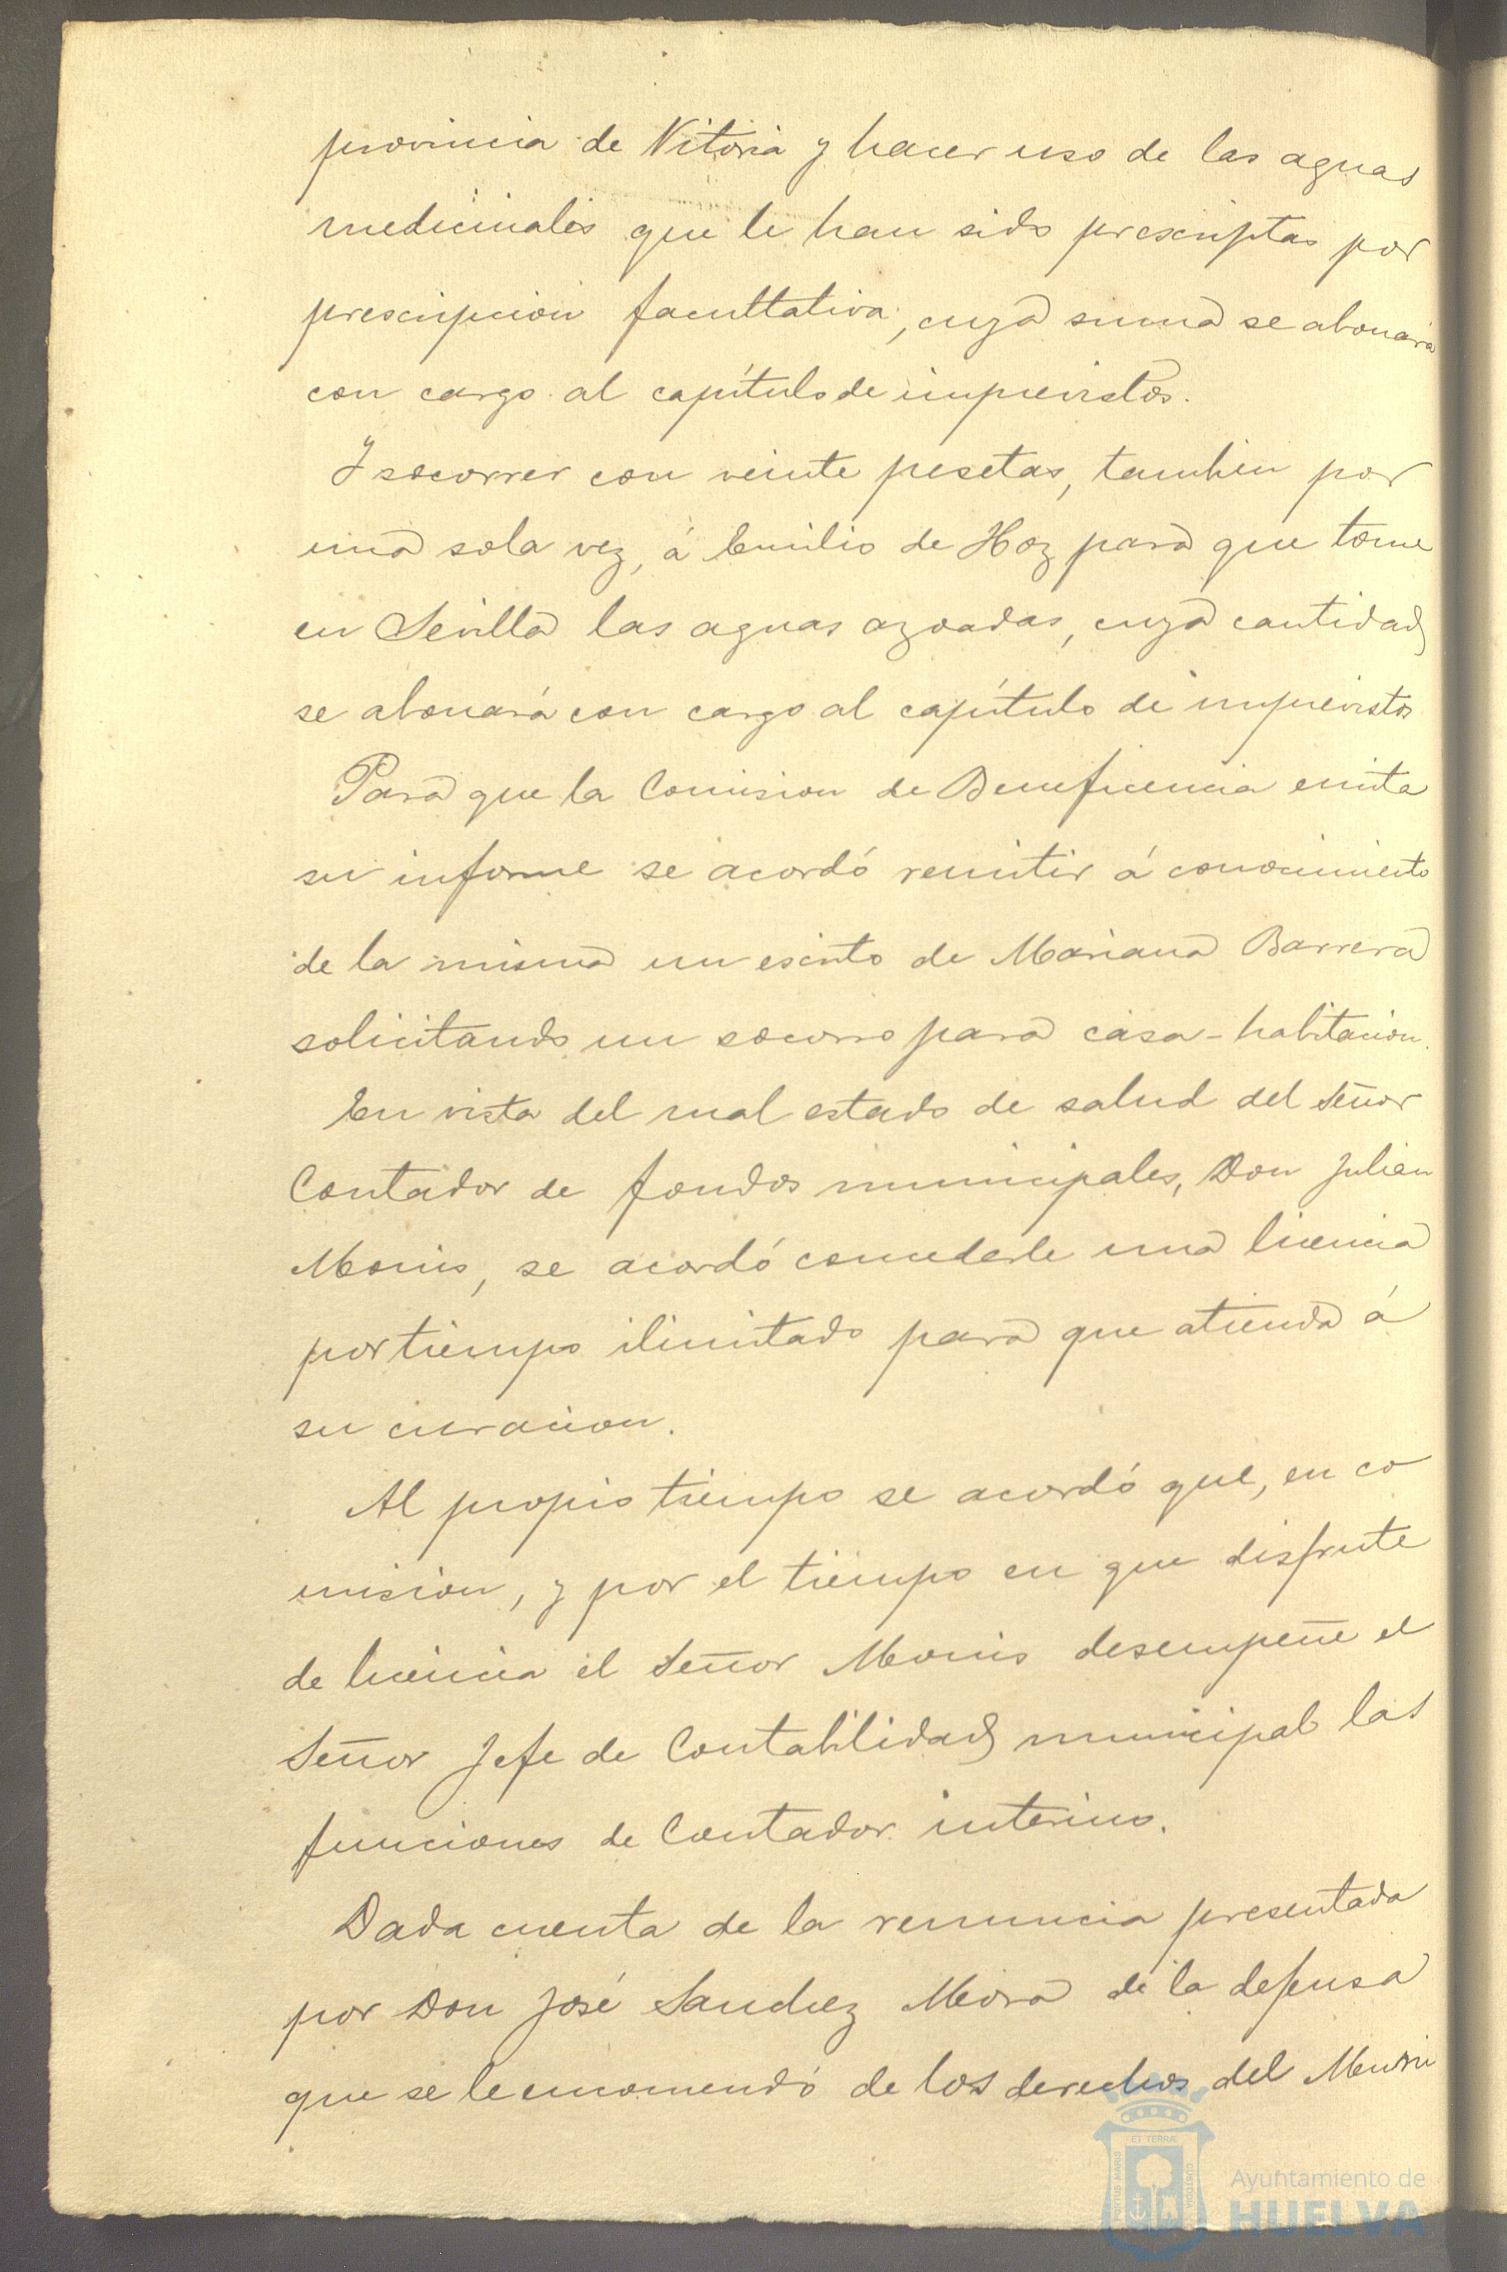 provincia de Vitoria y hacer uso de las aguas
medicinales que le han sido prescriptas por
prescripcion facultativa, cuya suma se abonará
con cargo al capítulo de imprevistos.
Y socorrer con veinte pesetas, tambien por
una sola vez, á Emilio de Hoz para que tome
en Sevilla las aguas azoadas, cuya cantidad
se abonará con cargo al capítulo de imprevistos
Para que la Comision de Beneficencia emita
su informe se acordó remitir á conocimiento
de la misma un escrito de Mariana Barrera
solicitando un socorro para casa-habitacion.
En vista del mal estado de salud del Señor
Contador de fondos municipales, Don Julian
Monis, se acordó concederle una licencia
por tiempo ilimitado para que atienda á
su curacion.
Al propio tiempo se acordó que, en co
mision, y por el tiempo en que disfrute
de licencia el Señor Monis desempeñe el
Señor Jefe de Contabilidad municipal las
funciones de Contador interino.
Dada cuenta de la renuncia presentada
por Don José Sanchez Mora de la defensa
que se le encomendó de los derechos del Muni
PORTUS MARIS ET TERRÆ CUSTODIA
Ayuntamiento de
HUELVA